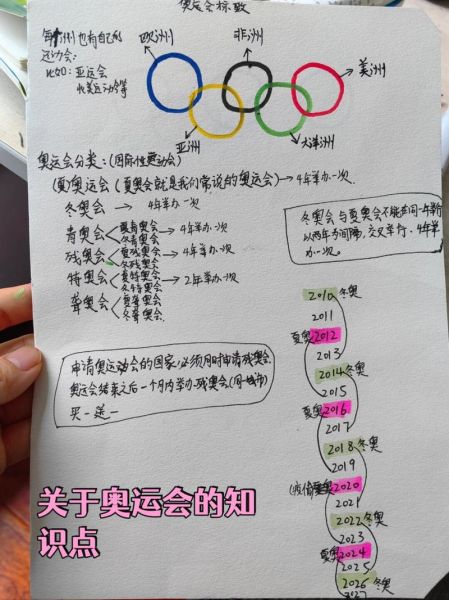 奥运会标致
每个洲也有自己的
运动会:
比如:亚运会
北美运动会等
欧洲
非洲
美洲
亚洲
大洋洲
奥运会分类:(国际性运动会)
(夏)奥运会(夏奥会就是我们常说的奥运会)→4年举办一次.
冬奥会→4年举办一次
青奥会
夏青奥会
冬青奥会
→4年举办一次
残奥会
夏残奥会
冬残奥会
→4年举办一次
特奥会
夏特奥会
冬特奥会
→2年举办一次
聋奥会
夏聋奥会
冬聋奥会.
冬奥会与夏奥会不能在同一年举行
以两年为间隔,交叉举行.4年举
办一次。
申请奥运动会的国家,必须同时申请残奥会.
奥运会结束之后一个月内举办残奥会(同一城市)
买一送一
2010冬奥
2011
夏奥2012
2013
2014冬奥
2015
夏奥2016
2017
2018冬奥
2019
夏奥2020
2021
2022冬奥
2023
夏奥2024
2025
2026冬奥
2027
关于奥运会的知
识点